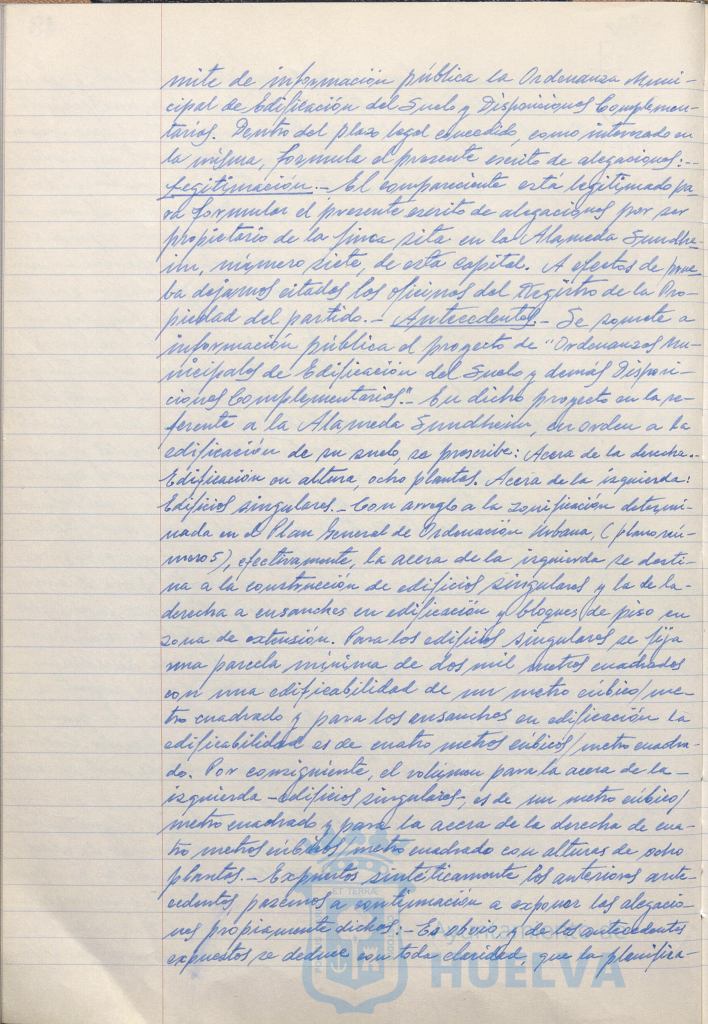 mite de información pública la Ordenanza Muni-
cipal de Edificación del Suelo y Disposiciones Complemen-
tarias. Dentro del plazo legal concedido, como interesado en
la misma, formula el presente escrito de alegaciones:--
Legitimación.- El compareciente está legitimado pa-
ra formular el presente escrito de alegaciones por ser
propietario de la finca sita en la Alameda Sundhe-
im, número siete, de esta capital. A efectos de prue-
ba dejamos citados los oficinas del Registro de la Pro-
piedad del partido.- Antecedentes.- Se somete a
información pública el proyecto de "Ordenanzas Mu-
nicipales de Edificación del Suelo y demas Disposi-
ciones Complementarias".- En dicho proyecto en lo re-
ferente a la Alameda Sundheim, en orden a la
edificación de su suelo, se prescribe: Acera de la derecha.-
Edificación en altura, ocho plantas. Acera de la izquierda:
Edificios singulares.- Con arreglo a la zonificación determi-
nada en el Plan General de Ordenación Urbana, (plano nú-
mero 5), efectivamente, la acera de la izquierda se desti-
na a la construcción de edificios singulares y la de la-
derecha a ensanches en edificación y bloques de piso en
zona de extensión. Para los edificios singulares se fija
una parcela mínima de dos mil metros cuadrados
con una edificabilidad de un metro cúbico/me-
tro cuadrado y para los ensanches en edificación la
edificabilidad es de cuatro metros cúbicos/metro cuadra-
do. Por consiguiente, el volúmen para la acera de la-
izquierda -edificios singulares-, es de un metro cúbico/
metro cuadrado y para la acera de la derecha de cua-
tro metros cúbicos/metro cuadrado con alturas de ocho
plantas.- Expuestos sintéticamente los anteriores ante-
cedentes, pasemos a continuación a exponer las alegacio-
nes propiamente dichas:- Es obvio y de los antecedentes
expuestos se deduce con toda claridad, que la planifica-
HUELVA